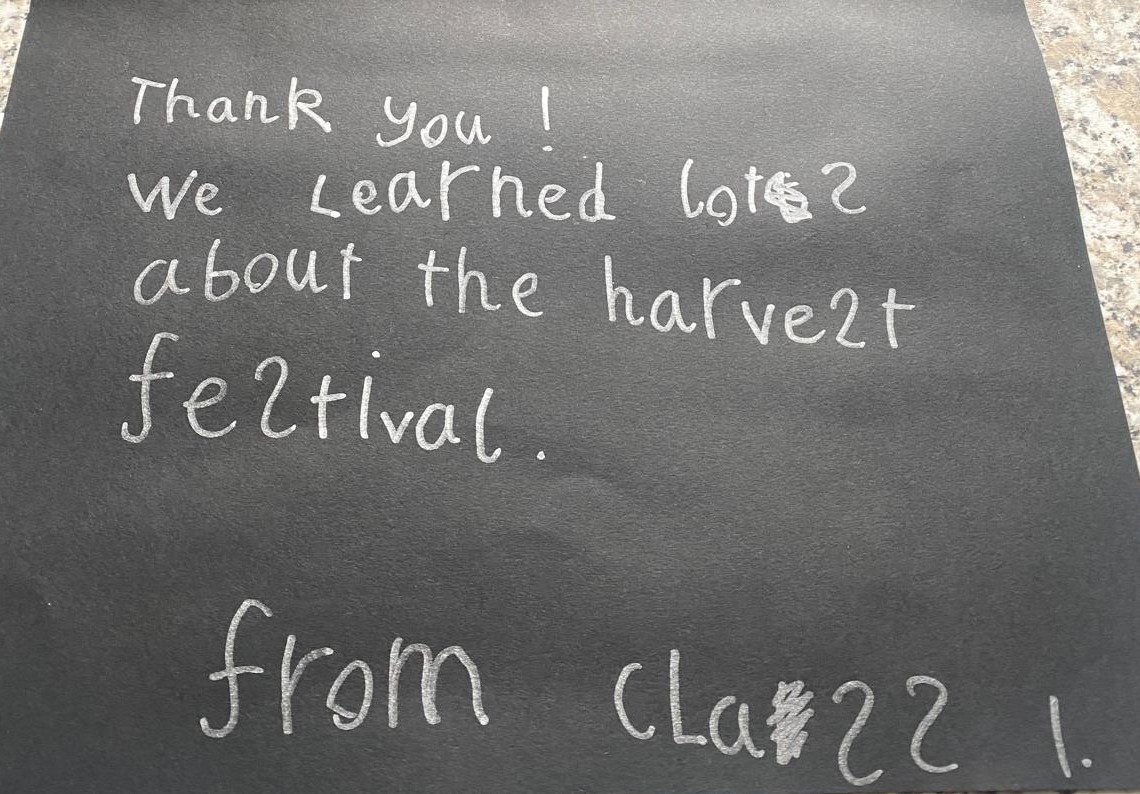 Thank you!
We Learned lots
about the harvest
festival.
from CLass 1.